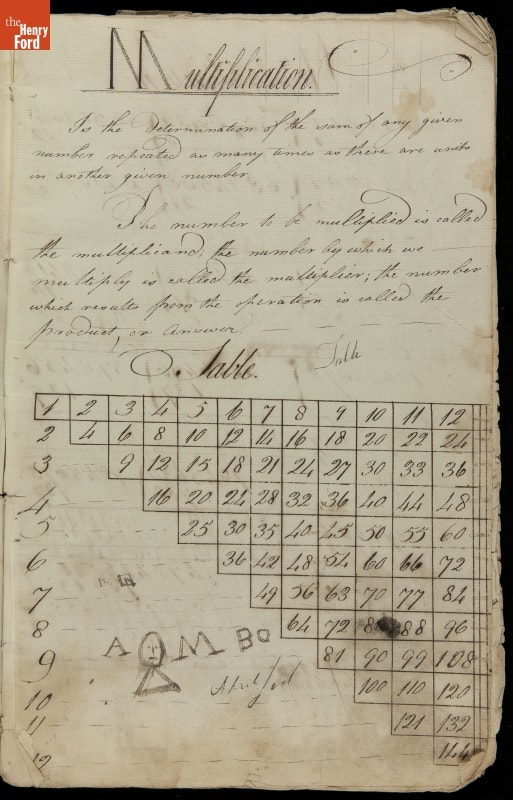 the
Henry
Ford
Multiplication.
Is the Determination of the sum of any given
number repeated as many times as there are units
in another given number
The number to be multiplied is called
the multiplicand; the number by which we
multiply is called the multiplier; the number
which results from the operation is called the
product, or answer.
Table. Table
1 2 3 4 5 6 7 8 9 10 11 12
2 4 6 8 10 12 14 16 18 20 22 24
3 9 12 15 18 21 24 27 30 33 36
4 16 20 24 28 32 36 40 44 48
5 25 30 35 40 45 50 55 60
6 36 42 48 54 60 66 72
7 49 56 63 70 77 84
8 64 72 8 88 96
9 81 90 99 108
10 100 110 120
11 121 132
12 144
A M BO